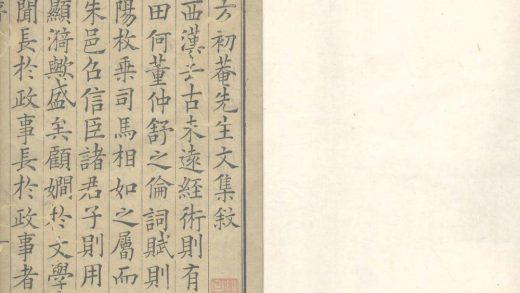 方初菴先生文集敘
西漢去古未遠經術則有
田何董仲舒之倫詞賦則
陽枚乗司馬相如之屬而
朱邑召信臣諸君子則用
顯漪歟盛矣顧嫺於文學
聞長於政事長於政事者